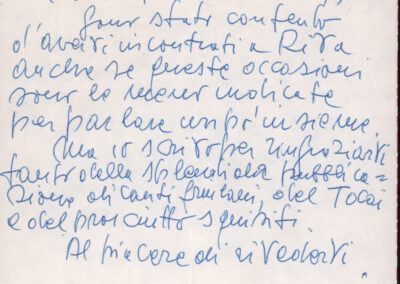 Sono stato contento
d'avervi incontrati a Riva
anche se queste occasioni
sono le meno indicate
per parlare un po' insieme.
Ma io scrivo per ringraziarvi
tanto della splendida pubblica=
zione di canti friulani, del Tocai
e del prosciutto squisiti.
Al piacere di rivedervi